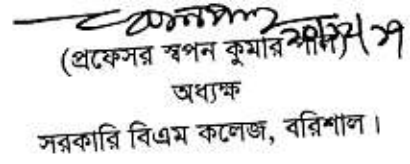 (প্রফেসর স্বপন কুমার পাল)
অধ্যক্ষ
সরকারি বিএম কলেজ, বরিশাল।